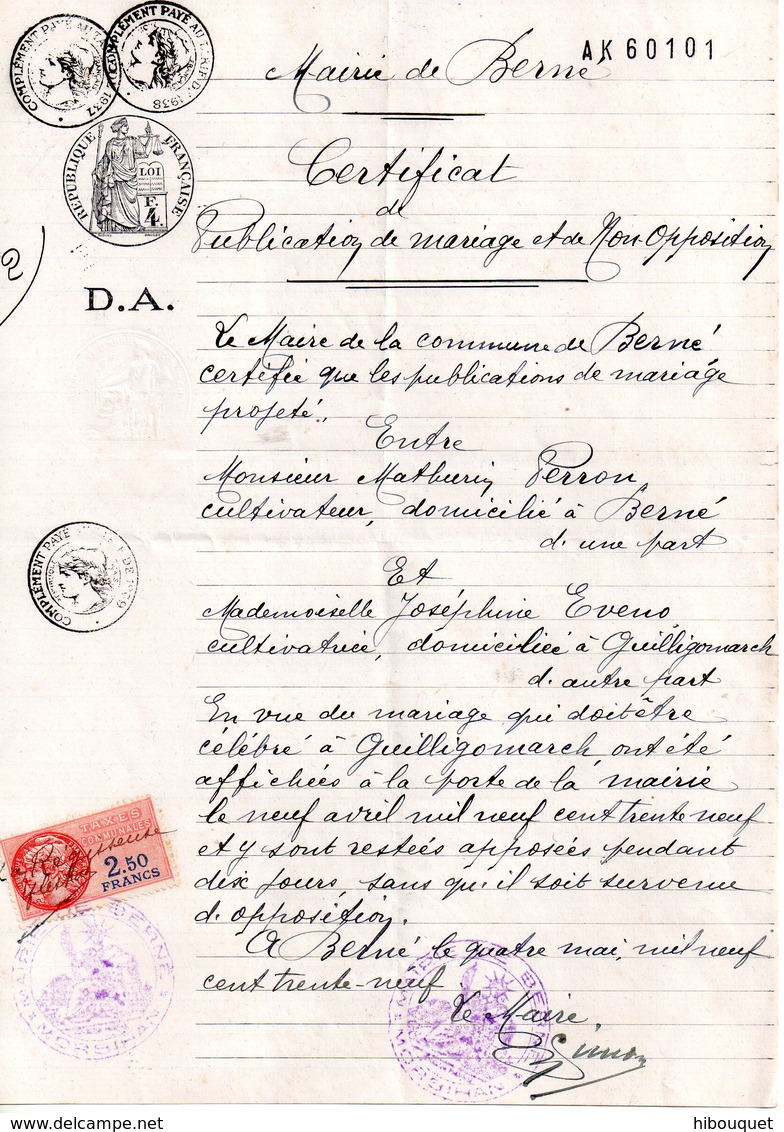 COMPLÉMENT PAYÉ AU
1937
COMPLÉMENT PAYÉ AU
1938
AK 60101
Mairie de Berné
RÉPUBLIQUE FRANÇAISE
LOI
F.
4
Certificat
de
Publication de mariage et de Non-Opposition
2
D.A.
Le Maire de la commune de Berné
certifie que les publications de mariage
projeté,
Entre
Monsieur Mathurin Perron,
cultivateur, domicilié à Berné
d'une part
COMPLÉMENT PAYÉ
Et
Mademoiselle Joséphine Eveno,
cultivatrice, domiciliée à Guilligomarch
d'autre part
En vue du mariage qui doit être
célébré à Guilligomarch ont été
affichées à la porte de la mairie
le neuf avril mil neuf cent trente neuf
et y sont restées apposées pendant
dix jours, sans qu'il soit survenu
d'opposition.
TAXES
COMMUNALES
2.50
FRANCS
A Berné le quatre mai, mil neuf
cent trente-neuf.
Le Maire,
Simon
MAIRIE DE BERNÉ
MORBIHAN
MAIRIE DE BERNÉ
MORBIHAN
hibouquet